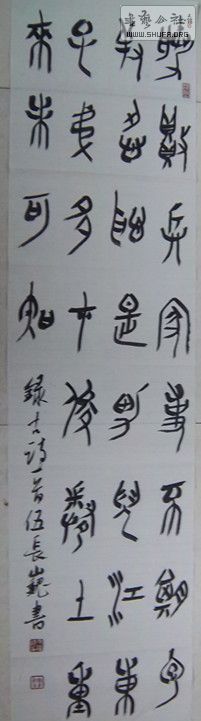 勝敗兵家事不期包
羞忍恥是男兒江東
子弟多才俊卷土重
來未可知
錄古詩一首伍長巍書
書藝公社
WWW.SHUFA.ORG